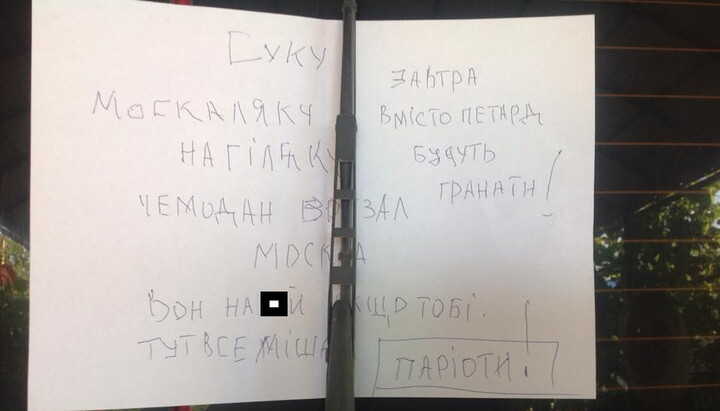 СУКУ
МОСКАЛЯКУ
НА ГІЛЯКУ
ЧЕМОДАН ВОКЗАЛ
МОСКВА
ВОН НА Й ЯКЩО ТОБІ.
ТУТ ВСЕ МІША
ЗАВТРА
ВМІСТО ПЕТАРД
БУДУТЬ
ГРАНАТИ!
ПАРІОТИ!